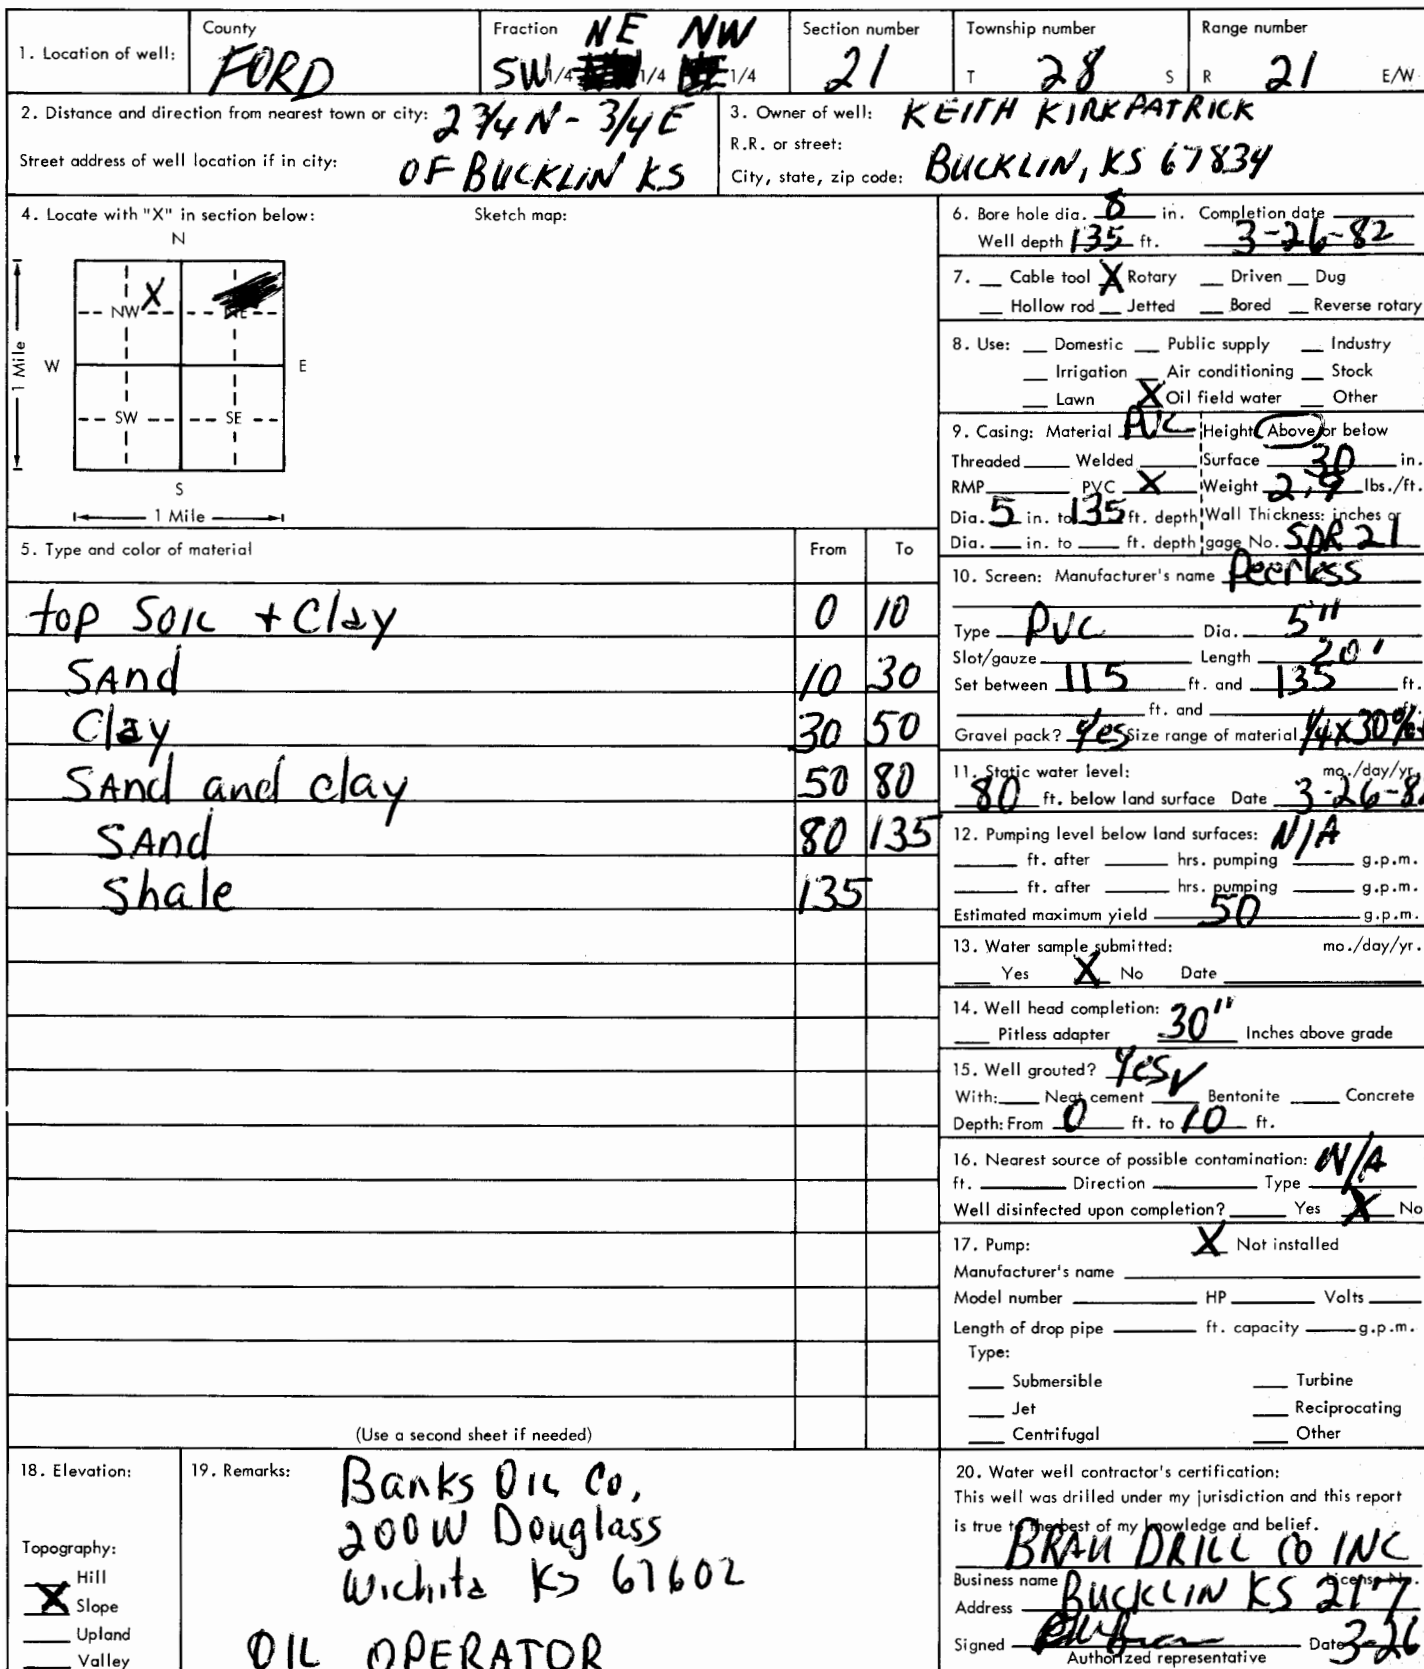 1. Location of well: County FORD Fraction SW 1/4 NE 1/4 NW 1/4 Section number 21 Township number T 28 S Range number R 21 E/W
2. Distance and direction from nearest town or city: 2 3/4 N - 3/4 E
Street address of well location if in city: OF BUCKLIN KS
3. Owner of well: KEITH KIRKPATRICK
R.R. or street:
City, state, zip code: BUCKLIN, KS 67834
4. Locate with "X" in section below: Sketch map:
N
X
NW NE
W E
1 Mile
SW SE
S
1 Mile
5. Type and color of material From To
top SOIL + Clay 0 10
SAnd 10 30
Clay 30 50
SAnd and clay 50 80
SAnd 80 135
Shale 135
(Use a second sheet if needed)
6. Bore hole dia. 8 in. Completion date
Well depth 135 ft. 3-26-82
7. Cable tool X Rotary Driven Dug
Hollow rod Jetted Bored Reverse rotary
8. Use: Domestic Public supply Industry
Irrigation Air conditioning Stock
Lawn X Oil field water Other
9. Casing: Material PVC Height: Above or below
Threaded Welded Surface 30 in.
RMP PVC X Weight 2.9 lbs./ft.
Dia. 5 in. to 135 ft. depth Wall Thickness: inches or
Dia. in. to ft. depth gage No. SDR 21
10. Screen: Manufacturer's name Peerless
Type PVC Dia. 5"
Slot/gauze Length 20'
Set between 115 ft. and 135 ft.
ft. and ft.
Gravel pack? Yes Size range of material 1/4 X 30
11. Static water level: mo./day/yr.
80 ft. below land surface Date 3-26-82
12. Pumping level below land surfaces: N/A
ft. after hrs. pumping g.p.m.
ft. after hrs. pumping g.p.m.
Estimated maximum yield 50 g.p.m.
13. Water sample submitted: mo./day/yr.
Yes X No Date
14. Well head completion:
Pitless adapter 30" Inches above grade
15. Well grouted? Yes
With: Neat cement ✓ Bentonite Concrete
Depth: From 0 ft. to 10 ft.
16. Nearest source of possible contamination: N/A
ft. Direction Type
Well disinfected upon completion? Yes X No
17. Pump: X Not installed
Manufacturer's name
Model number HP Volts
Length of drop pipe ft. capacity g.p.m.
Type:
Submersible Turbine
Jet Reciprocating
Centrifugal Other
18. Elevation:
Topography:
Hill
X Slope
Upland
Valley
19. Remarks: Banks OIL Co,
200 W Douglass
Wichita KS 67602
OIL OPERATOR
20. Water well contractor's certification:
This well was drilled under my jurisdiction and this report
is true to the best of my knowledge and belief.
BRAU DRILL CO INC
Business name License No.
Address BUCKLIN KS 217
Signed Date 3-26
Authorized representative